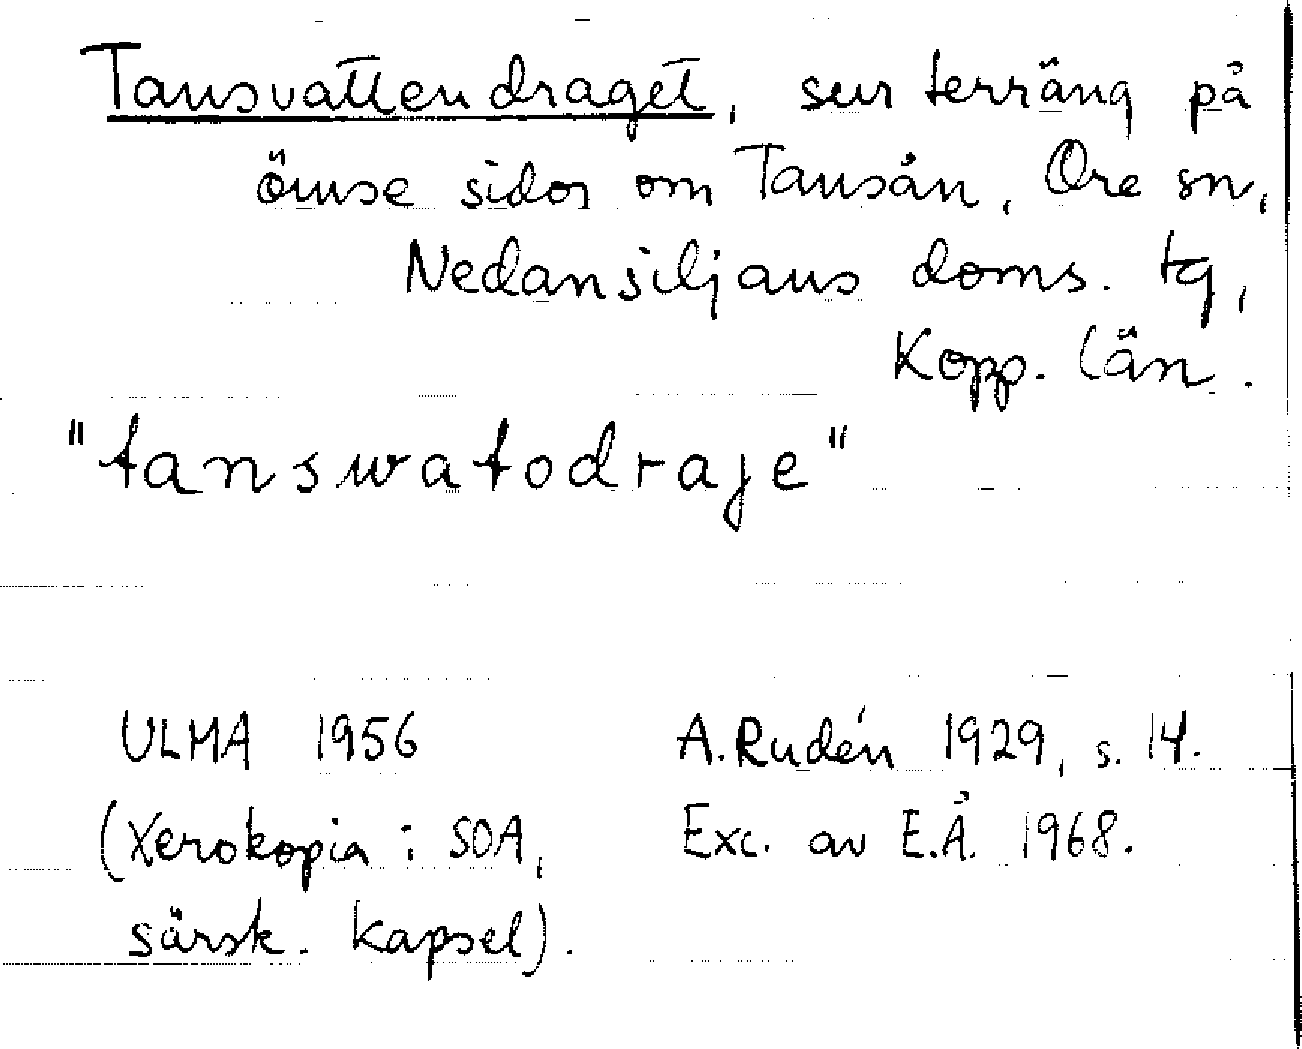 Tansvattendraget, sur terräng på
ömse sidor om Tansån, Ore sn,
Nedansiljans doms. tg,
Kopp. län.
"tanswatodraje"
ULMA 1956
(Xerokopia i SOA,
särsk. kapsel).
A. Rudén 1929, s. 14.
Exc. av E.Å. 1968.